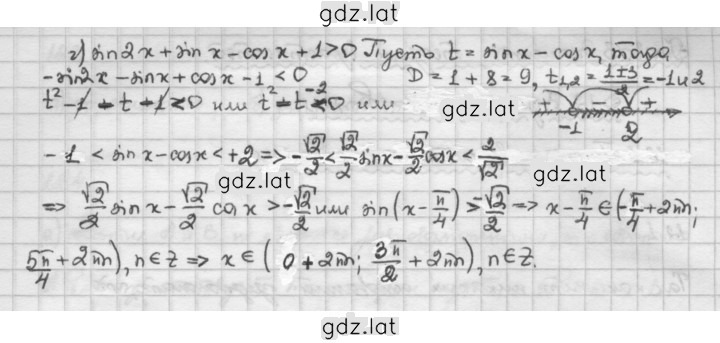 gdz.lat
г) sin2x + sinx - cosx + 1 > 0 Пусть t = sinx - cosx, тогда
-sin2x - sinx + cosx - 1 < 0 D = 1 + 8 = 9, t₁,₂ = (1±3)/2 = -1 и 2
t² - 1 - t - 1 < 0 или t² - t - 2 < 0 или
gdz.lat
+ - +
-1 2
-1 < sinx - cosx < +2 => -√2/2 < √2/2 sinx - √2/2 cosx < 2/√2
gdz.lat
gdz.lat
=> √2/2 sinx - √2/2 cosx > -√2/2 или sin(x - π/4) > -√2/2 => x - π/4 ∈ (-π/4 + 2πn;
5π/4 + 2πn), n ∈ Z => x ∈ (0 + 2πn; 3π/2 + 2πn), n ∈ Z.
gdz.lat
gdz.lat
gdz.lat